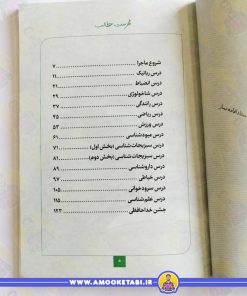 فهرست مطالب
شروع ماجرا ۷
درس رباتیک ۱۱
درس انضباط ۲۱
درس شاخولوژی ۲۹
درس رانندگی ۳۷
درس ریاضی ۴۵
درس ورزش ۵۳
درس میوه‌شناسی ۶۱
درس سبزیجات‌شناسی (بخش اول) ۷۱
درس سبزیجات‌شناسی (بخش دوم) ۸۱
درس داروشناسی ۸۹
درس خیاطی ۹۷
درس سرودخوانی ۱۰۵
درس علم‌شناسی ۱۱۵
جشن خداحافظی ۱۲۳
WWW.AMOOKETABI.IR